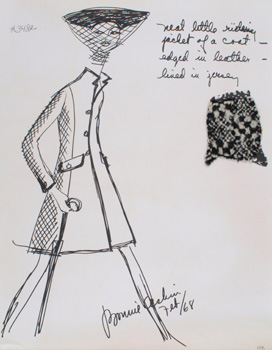 neat little riding
jacket of a coat –
edged in leather –
lined in jersey
Bonnie Cashin
Feb/68